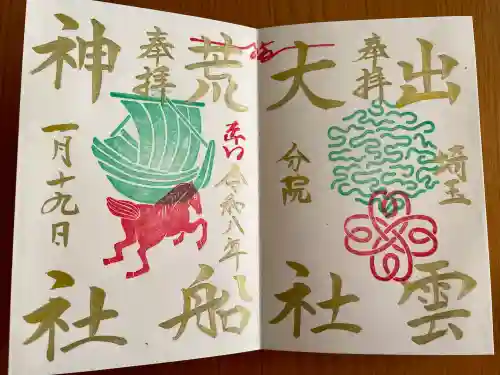 出雲
埼玉
奉拝
大社
分院
荒船
令和八年
奉拝
神社
一月十九日